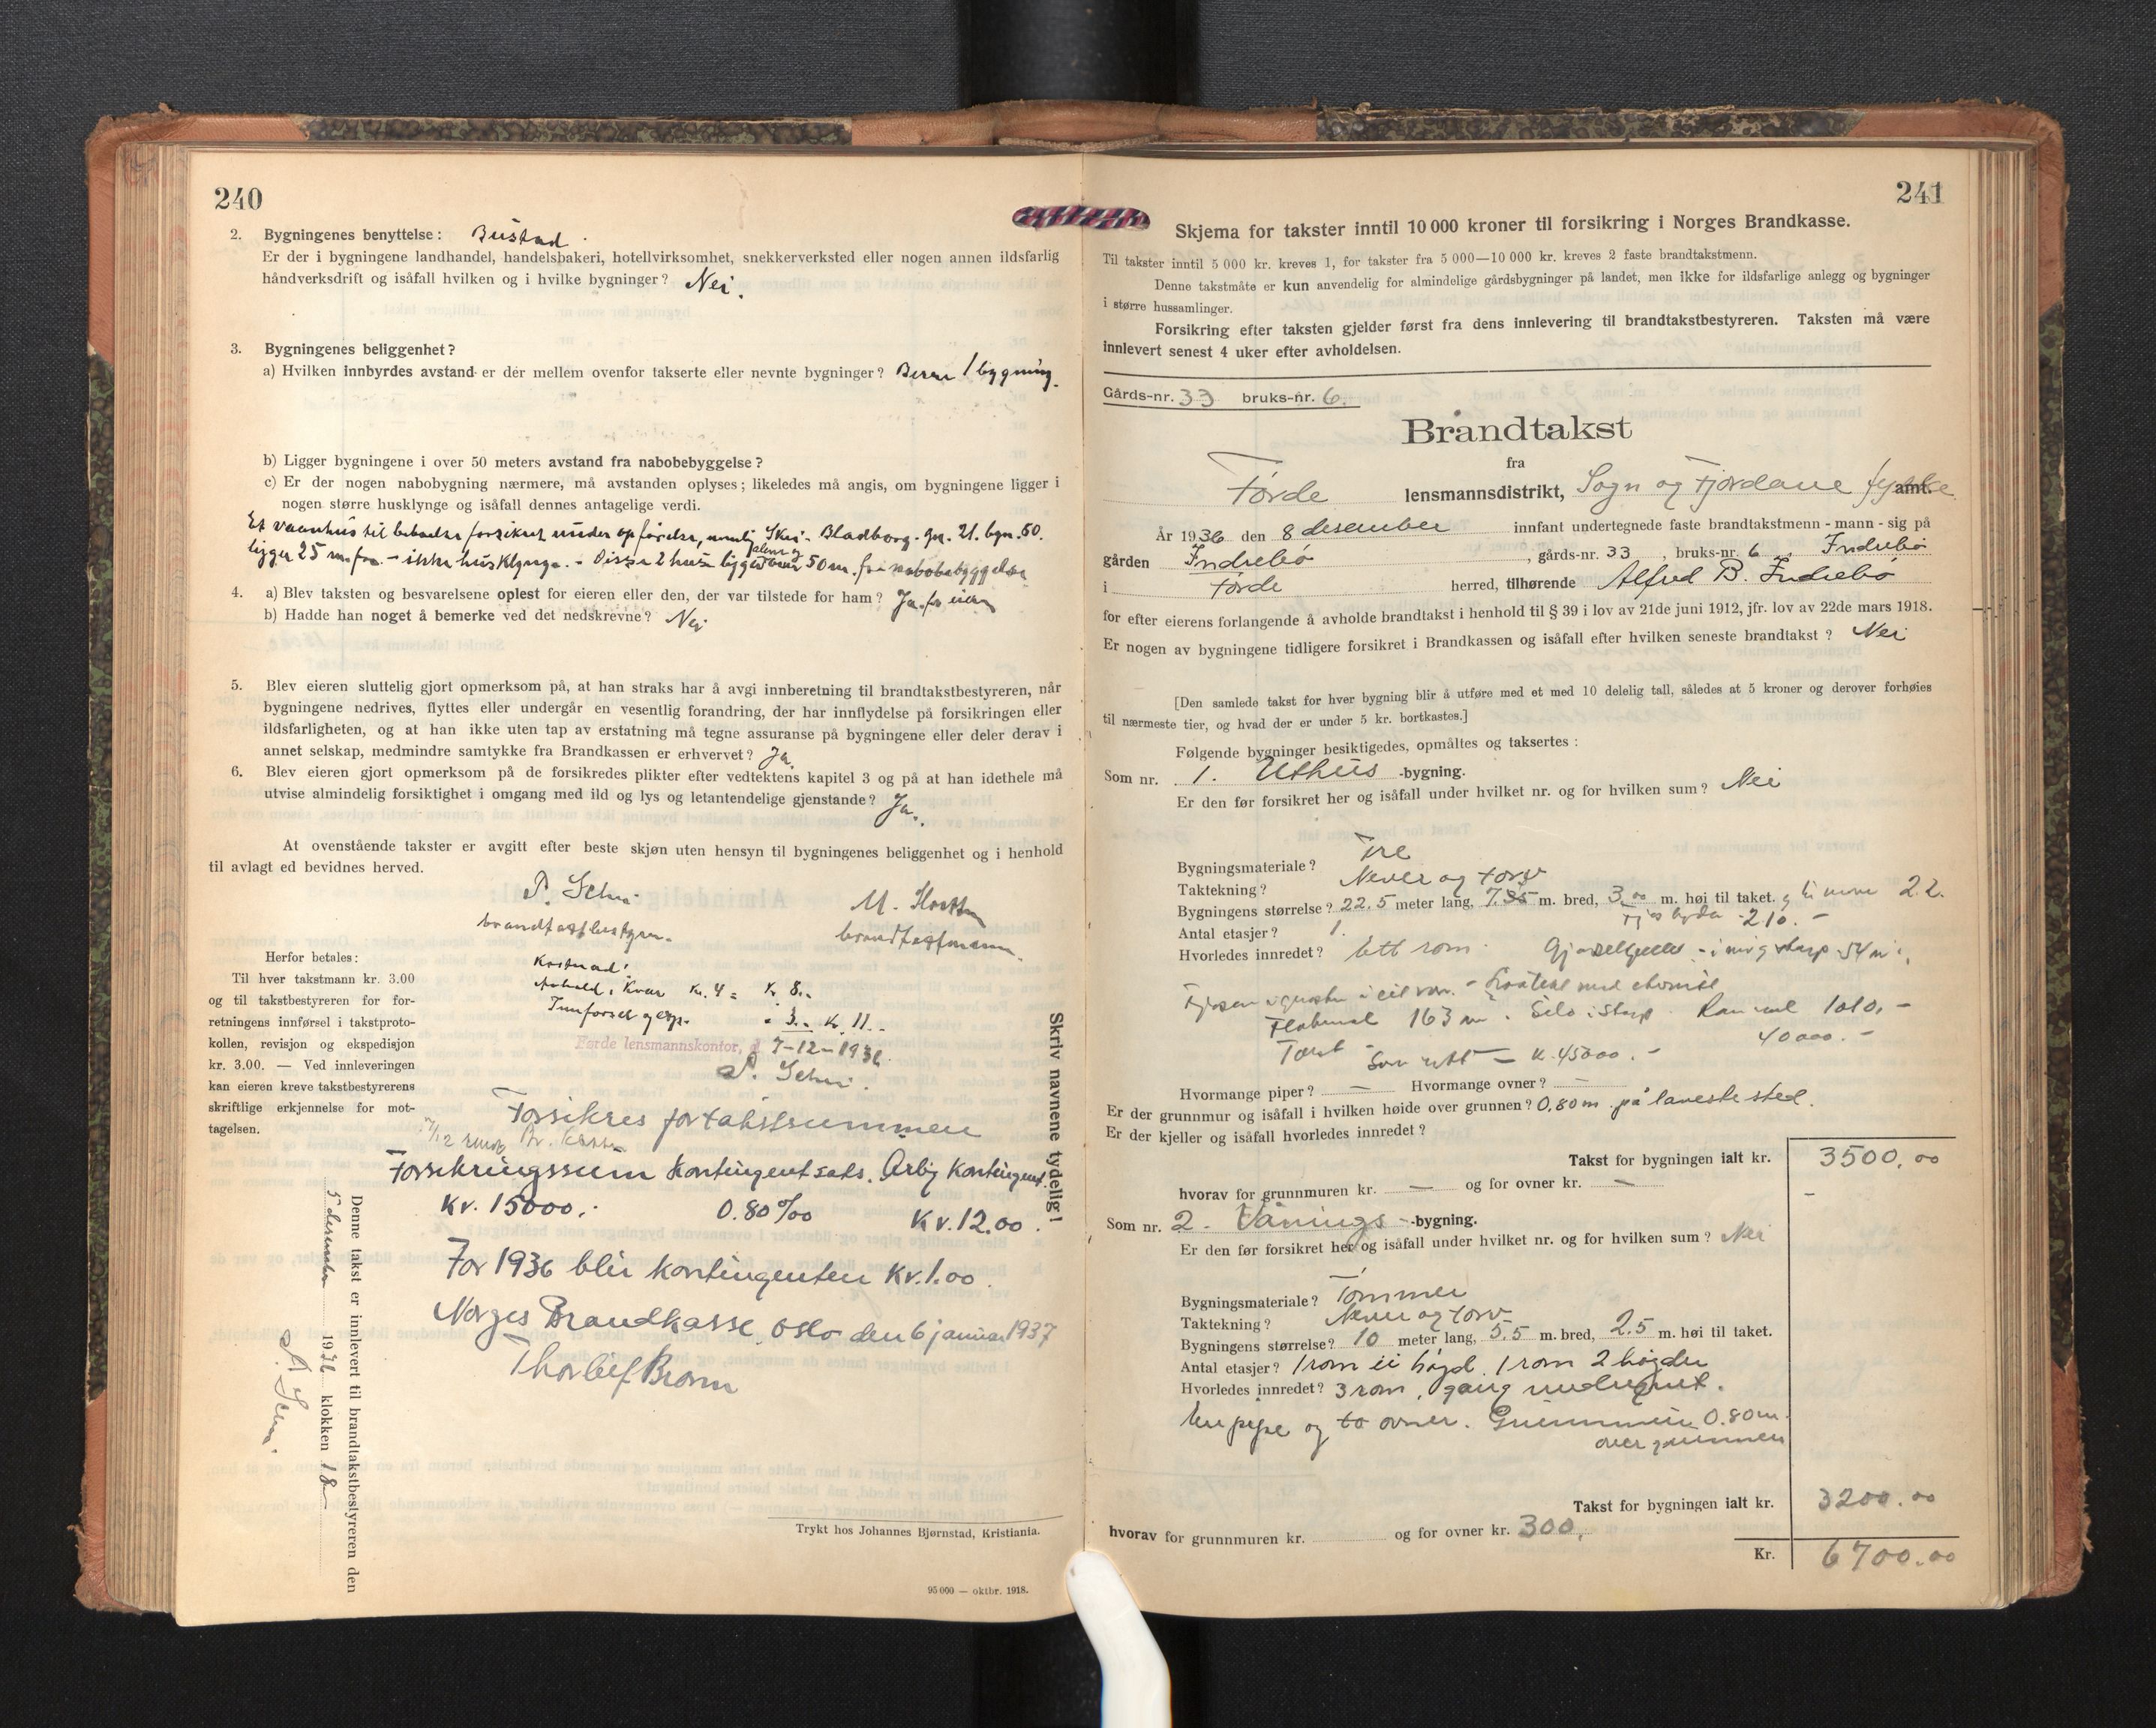 240
2. Bygningenes benyttelse: Bustad.
Er der i bygningene landhandel, handelsbakeri, hotellvirksomhet, snekkerverksted eller nogen annen ildsfarlig
håndverksdrift og isåfall hvilken og i hvilke bygninger? Nei.
3. Bygningenes beliggenhet?
a) Hvilken innbyrdes avstand er der mellem ovenfor takserte eller nevnte bygninger? Berre 1 bygning.
b) Ligger bygningene i over 50 meters avstand fra nabobebyggelse?
c) Er der nogen nabobygning nærmere, må avstanden oplyses; likeledes må angis, om bygningene ligger i
nogen større husklynge og isåfall dennes antagelige verdi.
Et vaanhus til beboelse forsikret under opförelse, nemlig Skei - Bladborg. gn. 21. bgn. 50.
ligger 25 m fra. - ikke husklynge. - Disse 2 hus ligger 50 m. fra nabobebyggelse
4. a) Blev taksten og besvarelsene oplest for eieren eller den, der var tilstede for ham? Ja. for eieren
b) Hadde han noget å bemerke ved det nedskrevne? Nei
5. Blev eieren sluttelig gjort opmerksom på, at han straks har å avgi innberetning til brandtakstbestyreren, når
bygningene nedrives, flyttes eller undergår en vesentlig forandring, der har innflydelse på forsikringen eller
ildsfarligheten, og at han ikke uten tap av erstatning må tegne assuranse på bygningene eller deler derav i
annet selskap, medmindre samtykke fra Brandkassen er erhvervet? Ja.
6. Blev eieren gjort opmerksom på de forsikredes plikter efter vedtektens kapitel 3 og på at han idethele må
utvise almindelig forsiktighet i omgang med ild og lys og letantendelige gjenstande? Ja.
At ovenstående takster er avgitt efter beste skjøn uten hensyn til bygningenes beliggenhet og i henhold
til avlagt ed bevidnes herved.
brandtakstbestyrer.
brandtakstmann.
Herfor betales:
Til hver takstmann kr. 3.00
og til takstbestyreren for for-
retningens innførsel i takstproto-
kollen, revisjon og ekspedisjon
kr. 3.00. — Ved innleveringen
kan eieren kreve takstbestyrerens
skriftlige erkjennelse for mot-
tagelsen.
Kostnad:
Avhald, kvar kr. 4 = kr 8.-
Innførsel og eksp. - 3.- Kr. 11.-
Førde lensmannskontor, d. 7-12-1936.
Forsikres for takstsummen
Forsikringssum Kontingentsats. Årlig Kontingent.
Kr. 15000.- 0.80 ‰ Kr. 12.00.
For 1936 blir kontingenten Kr. 1.00.
Norges Brandkasse, Oslo den 6 januar 1937
Thorleif Bronn
Skriv navnene tydelig!
Denne takst er innlevert til brandtakstbestyreren den
5 desember 1936 klokken 18
Trykt hos Johannes Bjørnstad, Kristiania.
95 000 — oktbr. 1918.
241
Skjema for takster inntil 10 000 kroner til forsikring i Norges Brandkasse.
Til takster inntil 5 000 kr. kreves 1, for takster fra 5 000—10 000 kr. kreves 2 faste brandtakstmenn.
Denne takstmåte er kun anvendelig for almindelige gårdsbygninger på landet, men ikke for ildsfarlige anlegg og bygninger
i større hussamlinger.
Forsikring efter taksten gjelder først fra dens innlevering til brandtakstbestyreren. Taksten må være
innlevert senest 4 uker efter avholdelsen.
Gårds-nr. 33 bruks-nr. 6.
Brandtakst
fra
Førde lensmannsdistrikt, Sogn og Fjordane fylke amt.
År 1936 den 8 desember innfant undertegnede faste brandtakstmenn - mann - sig på
gården Indrebö, gårds-nr. 33, bruks-nr. 6, Indrebö
i Førde herred, tilhørende Alfred B. Indrebö
for efter eierens forlangende å avholde brandtakst i henhold til § 39 i lov av 21de juni 1912, jfr. lov av 22de mars 1918.
Er nogen av bygningene tidligere forsikret i Brandkassen og isåfall efter hvilken seneste brandtakst? Nei
[Den samlede takst for hver bygning blir å utføre med et med 10 delelig tall, således at 5 kroner og derover forhøies
til nærmeste tier, og hvad der er under 5 kr. bortkastes.]
Følgende bygninger besiktigedes, opmåltes og taksertes:
Som nr. 1. Uthus -bygning.
Er den før forsikret her og isåfall under hvilket nr. og for hvilken sum? Nei
Bygningsmateriale? Tre
Taktekning? Never og torv
Bygningens størrelse? 22.5 meter lang, 7.35 m. bred, 3.00 m. høi til taket. 22.
Antal etasjer? 1. 210.-
Hvorledes innredet? ett rom. Gjødselkjeller
163 m Silo 1010.-
40000.-
Kr. 45000.-
Hvormange piper? — Hvormange ovner? —
Er der grunnmur og isåfall i hvilken høide over grunnen? 0,80 m på laveste sted.
Er der kjeller og isåfall hvorledes innredet?
Takst for bygningen ialt kr. 3500.00
hvorav for grunnmuren kr. — og for ovner kr. — -
Som nr. 2. Vånings -bygning.
Er den før forsikret her og isåfall under hvilket nr. og for hvilken sum? Nei
Bygningsmateriale? Tömmer
Taktekning? Never og torv
Bygningens størrelse? 10 meter lang, 5.5 m. bred, 2.5 m. høi til taket.
Antal etasjer? 1 rom ei høgd. 1 rom 2 høgder
Hvorledes innredet? 3 rom, gang
En pipe og to ovner. Grunnmur 0.80 m.
over grunnen
Takst for bygningen ialt kr. 3200.00
hvorav for grunnmuren kr. og for ovner kr. 300,
Kr. 6700.00